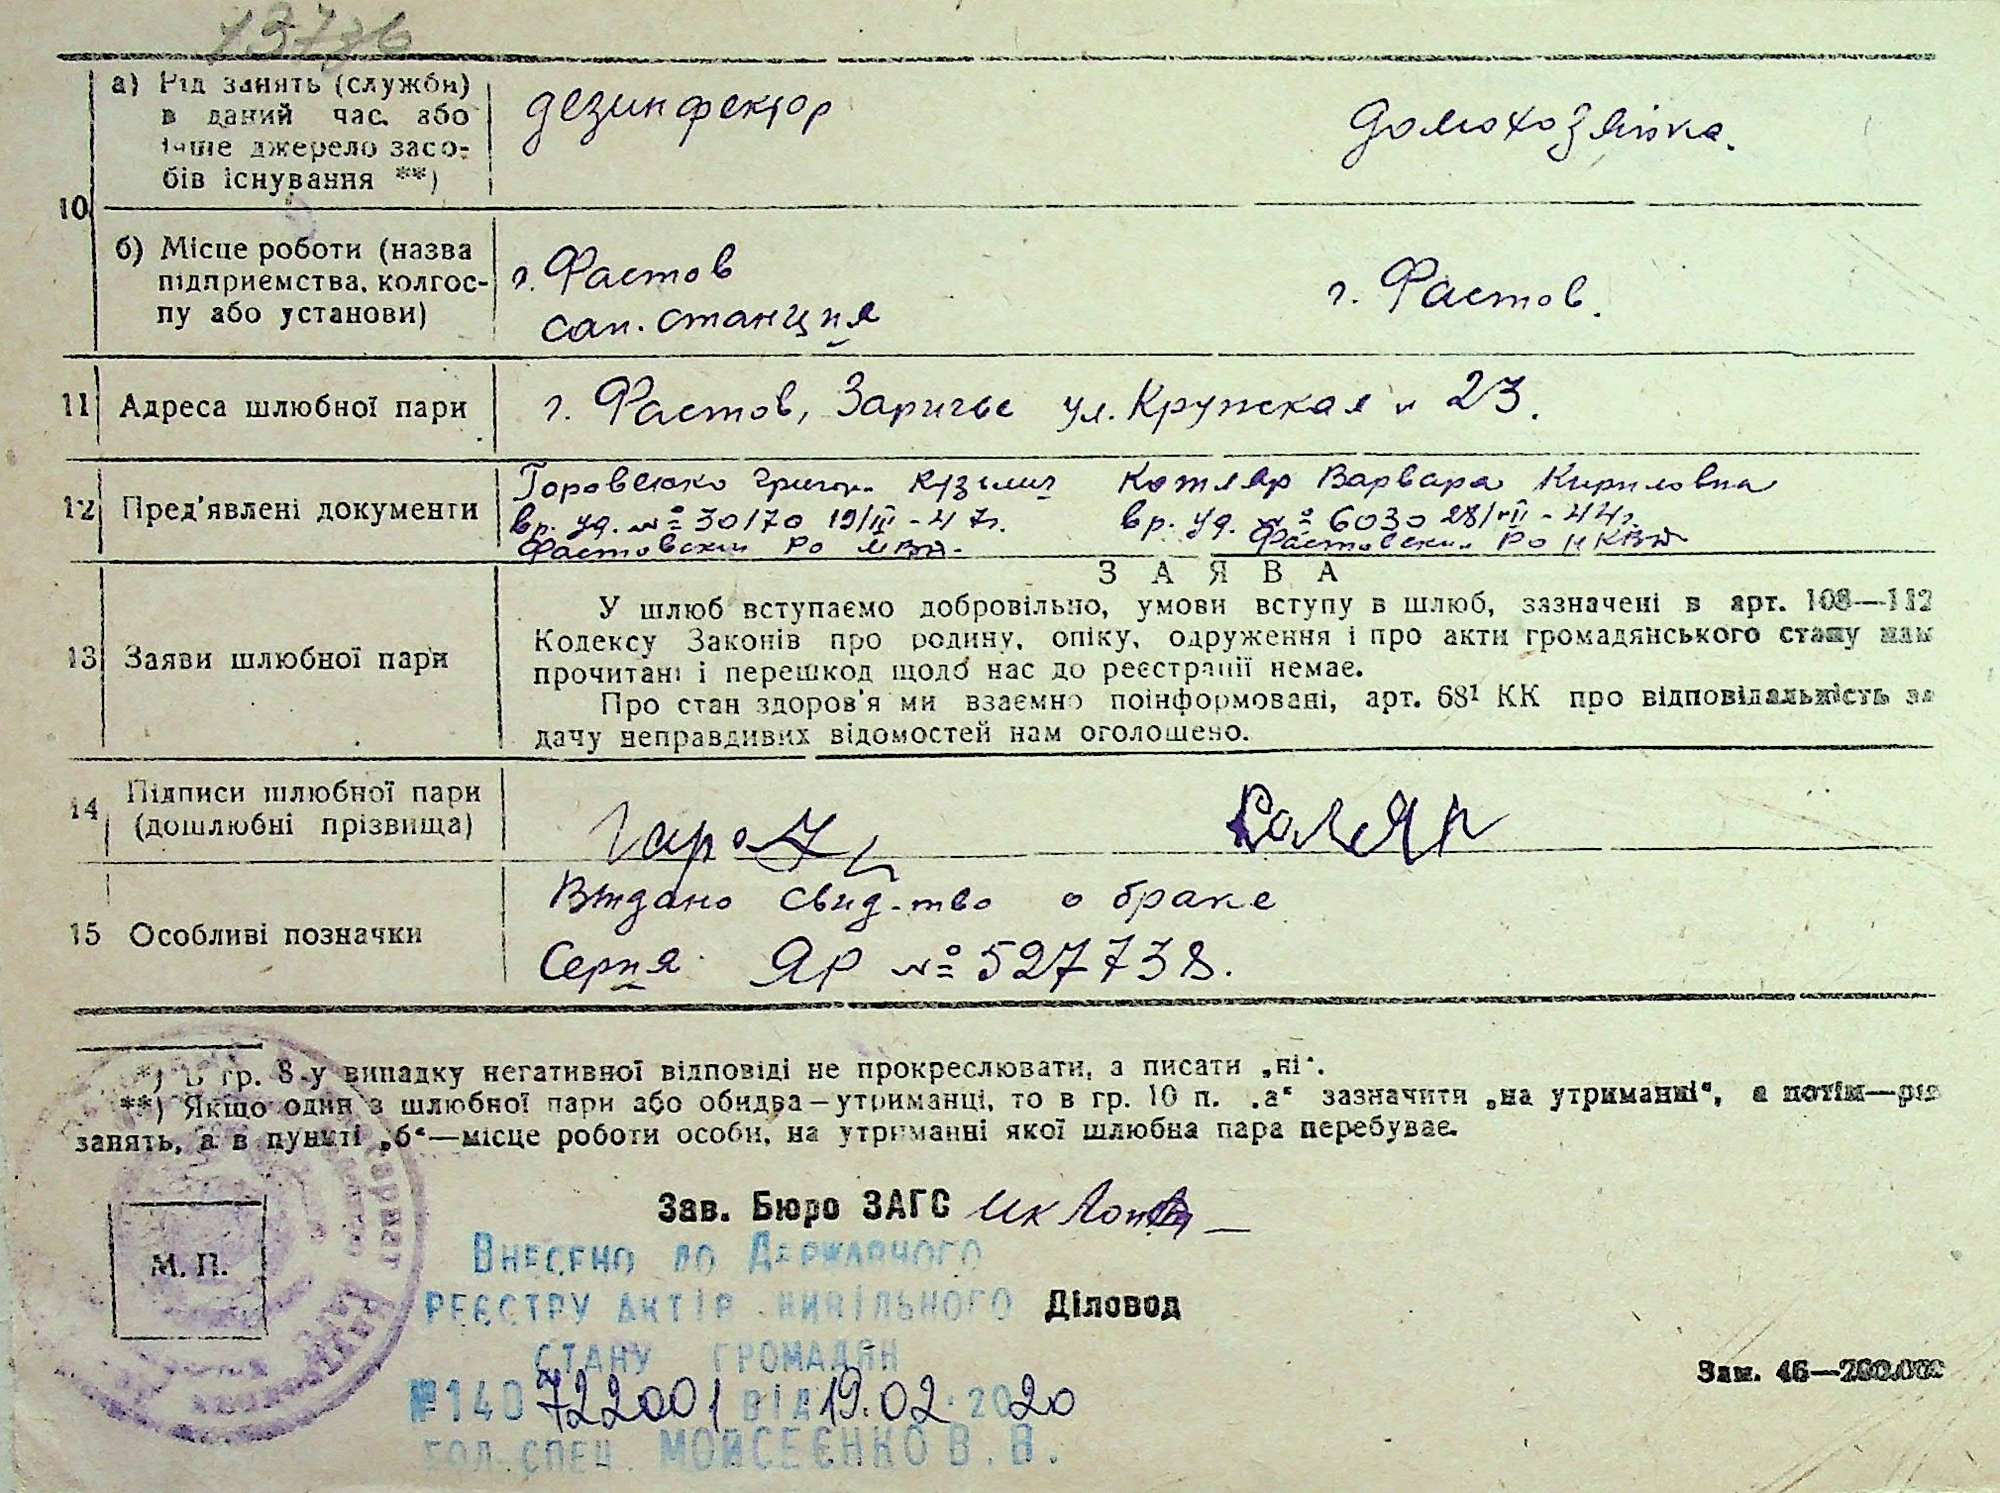 а) Рід занять (служби) в даний час. або інше джерело засобів існування **)
дезинфектор
домохозяйка.
10
б) Місце роботи (назва підприємства, колгоспу або установи)
г. Фастов
сан. станция
г. Фастов.
11 Адреса шлюбної пари
г. Фастов, Заричье ул. Кружская № 23.
12 Пред'явлені документи
Котляр Варвара Кириловна
вр. уд. № 30170 19/III-47г.
вр. уд. № 6030 28/VII-44г.
Фастовский РО МВД.
Фастовский РО НКВД
13 Заяви шлюбної пари
ЗАЯВА
У шлюб вступаємо добровільно, умови вступу в шлюб, зазначені в арт. 108—112
Кодексу Законів про родину, опіку, одруження і про акти громадянського стану нам
прочитані і перешкод щодо нас до реєстрації немає.
Про стан здоров'я ми взаємно поінформовані, арт. 68¹ КК про відповідальність за
дачу неправдивих відомостей нам оголошено.
14 Підписи шлюбної пари
(дошлюбні прізвища)
15 Особливі позначки
Видано свид-тво о браке
Серия ЯР № 527738.
*) В гр. 8 у випадку негативної відповіді не прокреслювати, а писати „ні“.
**) Якщо один з шлюбної пари або обидва—утриманці, то в гр. 10 п. „а“ зазначити „на утриманні“, а потім—рід
занять, а в пункті „б“—місце роботи особи, на утриманні якої шлюбна пара перебуває.
Зав. Бюро ЗАГС
М. П.
Внесено до Державного
реєстру актів цивільного
Діловод
стану громадян
№ 140 722001 від 19.02.2020
гол. спец. Мойсеєнко В. В.
Зам. 46—200.000